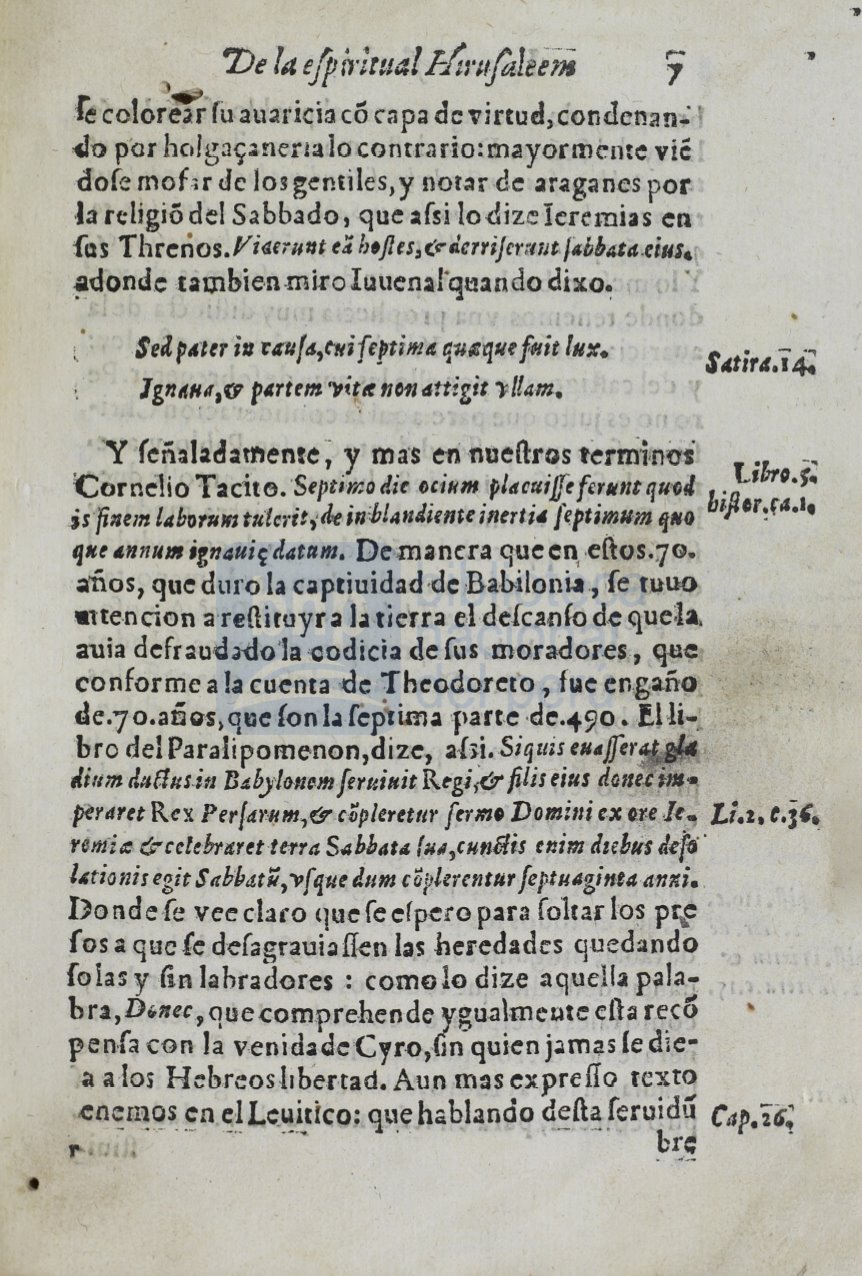 De la eſpiritual Hiruſaleem 7
ſe colorear ſu auaricia cõ capa de virtud, condenan-
do por holgaçaneria lo contrario: mayormente viẽ
doſe mofar de los gentiles, y notar de araganes por
la religiõ del Sabbado, que aſsi lo dize Ieremias en
ſus Threnos. Viderunt eã hoſtes, & derriſerunt ſabbata eius.
adonde tambien miro Iuuenal quando dixo.
Sed pater in cauſa, cui ſeptima quæque fuit lux.
Ignaua, & partem vitæ non attigit vllam.
Satira. 14.
Y ſeñaladamente, y mas en nueſtros terminos
Cornelio Tacito. Septimo die ocium placuiſſe ferunt quod
is finem laborum tulerit, de in blandiente inertia ſeptimum quo
que annum ignauię datum. De manera que en eſtos. 70.
Libro. 5.
hiſtor. ca. 1.
años, que duro la captiuidad de Babilonia, ſe tuuo
intencion a reſtituyr a la tierra el deſcanſo de que la
auia defraudado la codicia de ſus moradores, que
conforme a la cuenta de Theodoreto, fue engaño
de. 70. años, que ſon la ſeptima parte de. 490. El li-
bro del Paralipomenon, dize, aſsi. Siquis euaſſerat gla
dium ductus in Babylonem ſeruiuit Regi, & filis eius donec im-
peraret Rex Perſarum, & cõpleretur ſermo Domini ex ore Ie-
remiæ & celebraret terra Sabbata ſua, cunctis enim diebus deſo
lationis egit Sabbatũ, vſque dum cõplerentur ſeptuaginta anni.
Li. 2. c. 36.
Donde ſe vee claro que ſe eſpero para ſoltar los pre
ſos a que ſe deſagrauiaſſen las heredades quedando
ſolas y ſin labradores : como lo dize aquella pala-
bra, Donec, que comprehende ygualmente eſta recõ
penſa con la venida de Cyro, ſin quien jamas ſe die-
a a los Hebreos libertad. Aun mas expreſſo texto
enemos en el Leuitico: que hablando deſta ſeruidũ
Cap. 26.
r bre